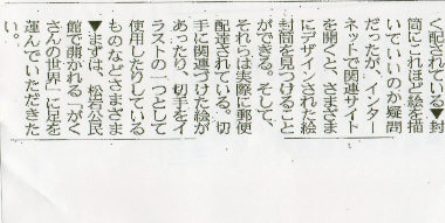 く配されている▼封
筒にこれほど絵を描
いていいのか疑問
だったが、インター
ネットで関連サイト
を開くと、さまざま
にデザインされた絵
封筒を見つけること
ができる。そして、
それらは実際に郵便
配達されている。切
手に関連づけた絵が
あったり、切手をイ
ラストの一つとして
使用したりしている
ものなどさまざま
▼まずは、松岩公民
館で開かれる「がく
さんの世界」に足を
運んでいただきた
い。